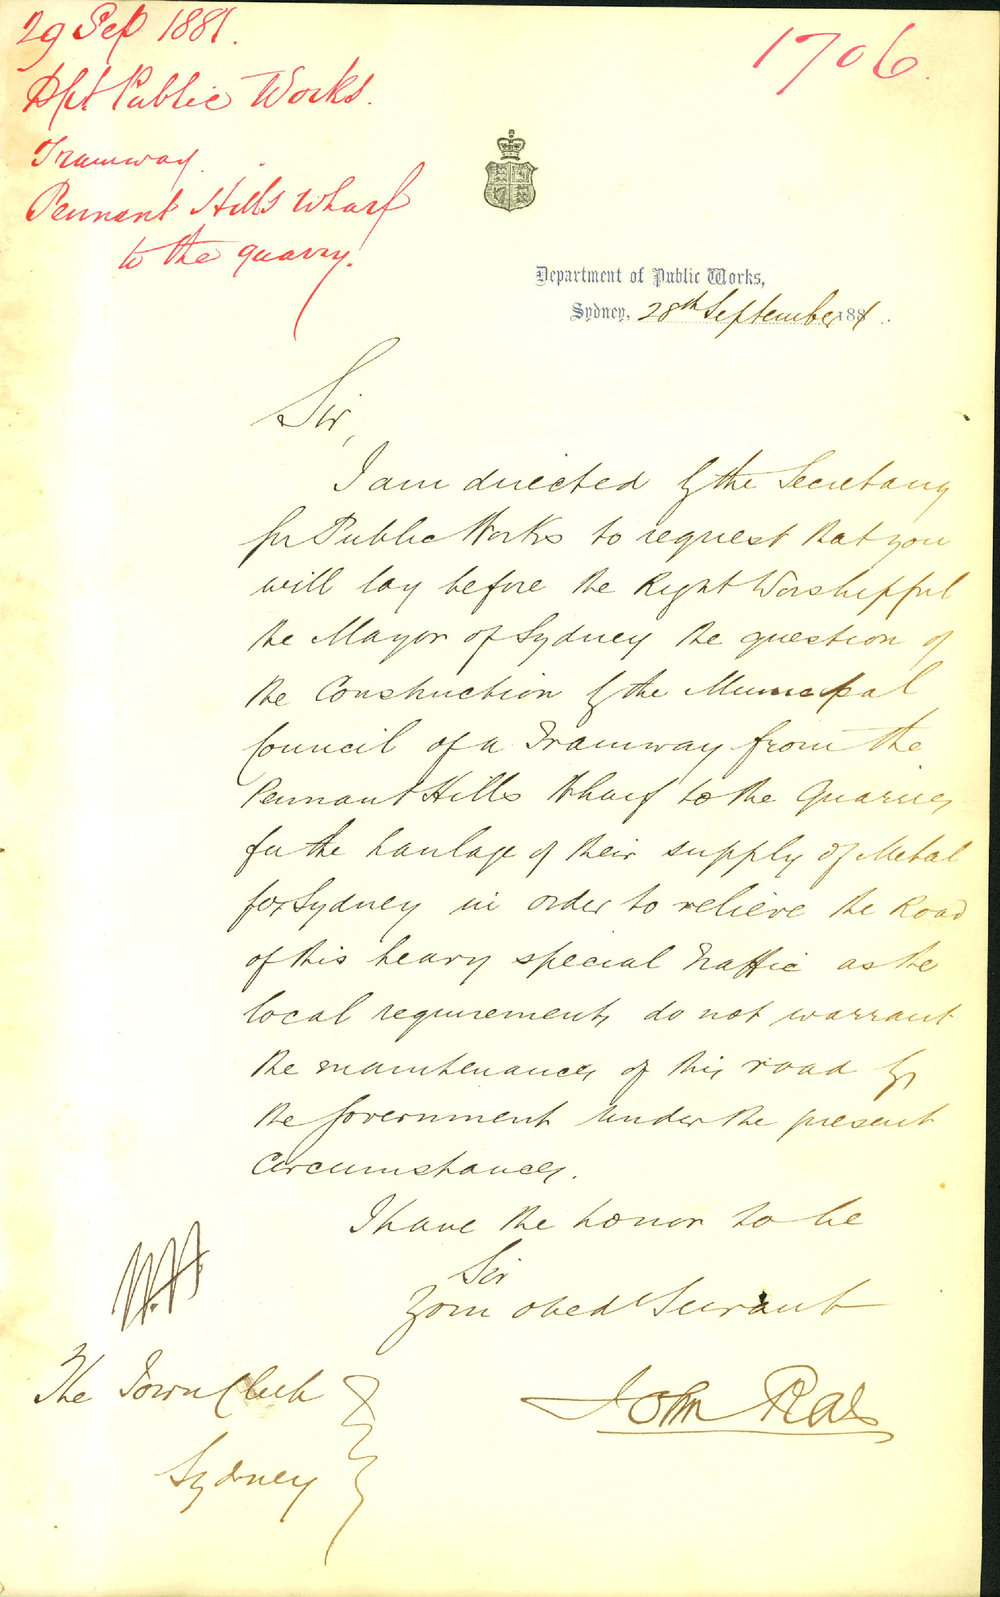 29 Sep 1881.
1706.
Dpt Public Works.
Tramway.
Pennant Hills Wharf
to the quarry.
Department of Public Works,
Sydney, 28th September 1881.
Sir,
I am directed by the Secretary
for Public Works to request that you
will lay before the Right Worshipful
the Mayor of Sydney the question of
the Construction by the Municipal
Council of a Tramway from the
Pennant Hills Wharf to the Quarries
for the haulage of their supply of Metal
for Sydney in order to relieve the Road
of this heavy special Traffic as the
local requirements do not warrant
the maintenance of this road by
the Government under the present
Circumstances.
I have the honor to be
Sir
Your obed Servant
John Rae
The Town Clerk
Sydney